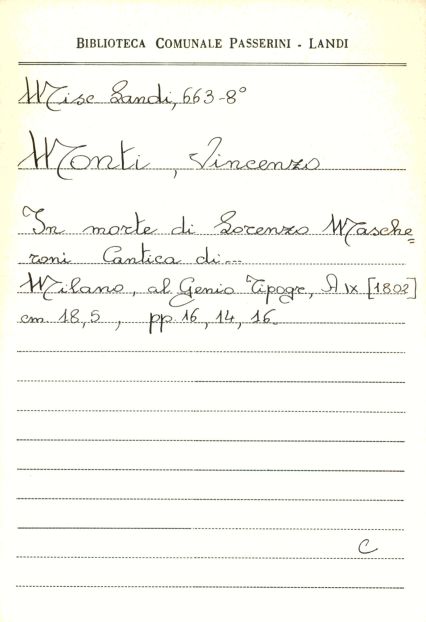 BIBLIOTECA COMUNALE PASSERINI - LANDI
Misc Landi, 663-8°
Monti, Vincenzo
In morte di Lorenzo Masche=
roni Cantica di...
Milano, al Genio Tipogr., A IX [1802]
cm 18,5, pp. 16, 14, 16.
C